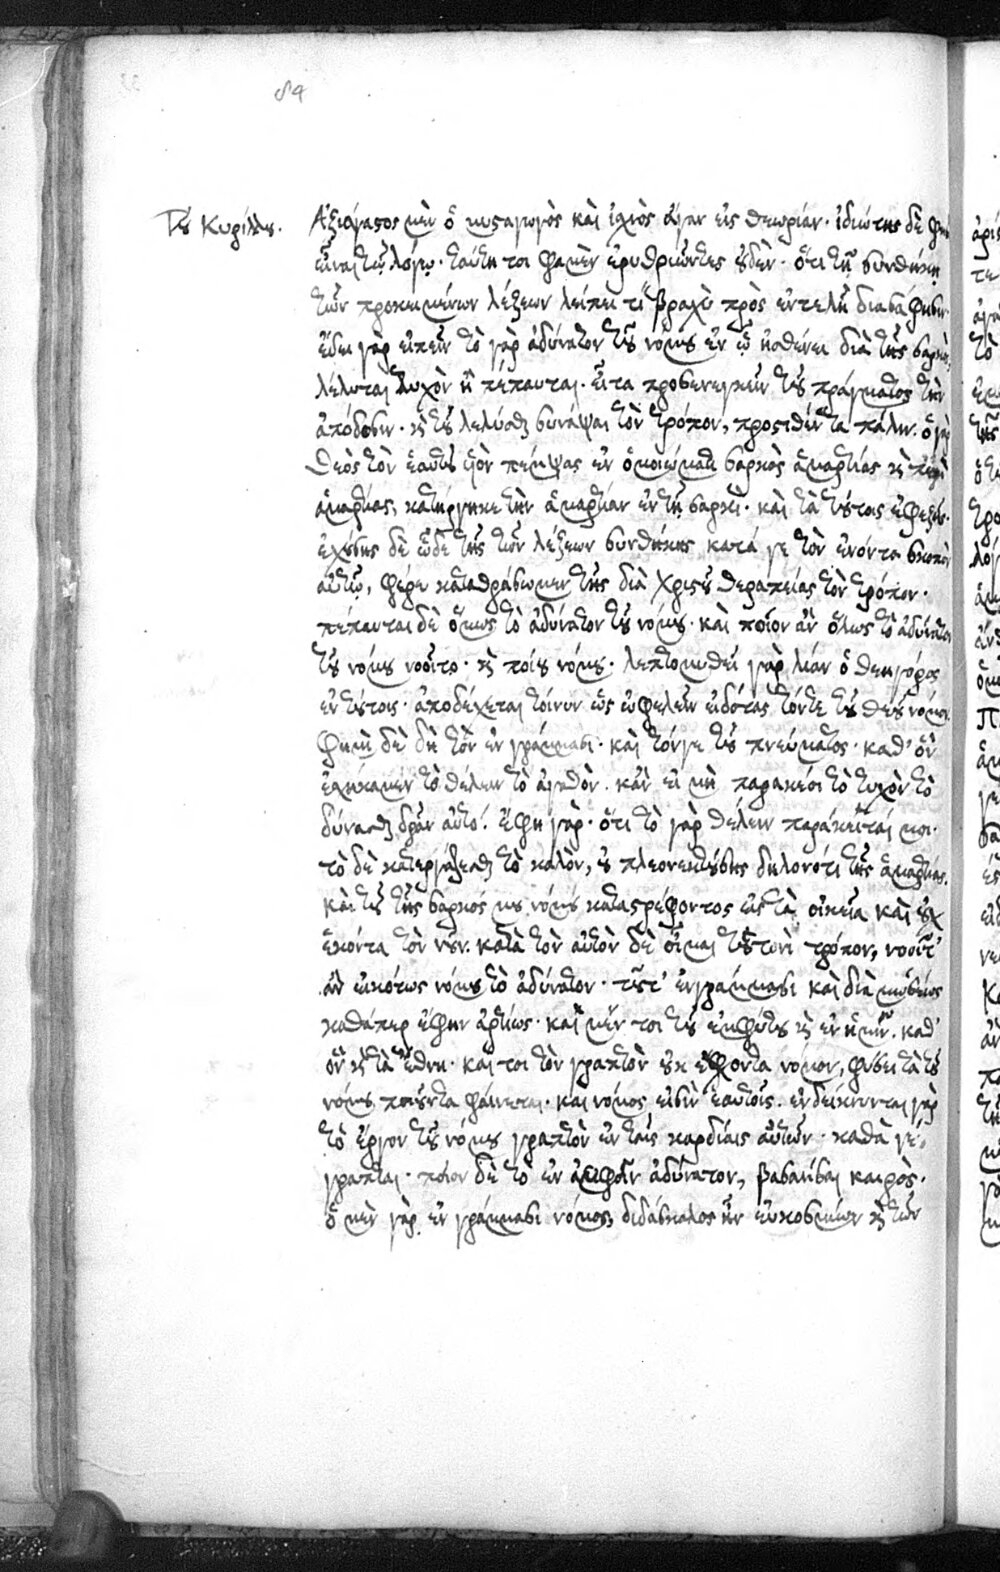 84
Τοῦ Κυρίλλου.
Ἀξιάγαστος μὲν ὁ μυσταγωγὸς καὶ ἰσχνὸς ἄγαν εἰς θεωρίαν· ἰδιώτης δὲ
εἶναι τῷ λόγῳ· ταύτῃ τοι φαμὲν ἐρυθριῶντες οὐδὲν· ὅτι τῇ συνθήκῃ
τῶν προκειμένων λέξεων λείπει τὶ βραχὺ πρὸς ἐντελῆ διασάφησιν·
ἔδει γὰρ εἰπεῖν τὸ γὰρ ἀδύνατον τοῦ νόμου ἐν ᾧ ἠσθένει διὰ τῆς σαρκὸς,
λέλυται τυχὸν ἢ πέπαυται· εἶτα προσενεγκεῖν τοῦ πράγματος τὴν
ἀπόδοσιν· καὶ τοῦ λελύσθαι συνάψαι τὸν τρόπον, προστιθέντα πάλιν· ὁ γὰρ
θεὸς τὸν ἑαυτοῦ υἱὸν πέμψας ἐν ὁμοιώματι σαρκὸς ἁμαρτίας καὶ περὶ
ἁμαρτίας, κατήργηκε τὴν ἁμαρτίαν ἐν τῇ σαρκὶ· καὶ τὰ τούτοις ἐφεξῆς·
ἐχούσης δὲ ὧδε τῆς τῶν λέξεων συνθήκης κατά γε τὸν ἐνόντα σκοπὸν
αὐτῷ, φέρε καταθρήσωμεν τῆς διὰ χριστοῦ θεραπείας τὸν τρόπον·
πέπαυται δὲ ὅπως τὸ ἀδύνατον τοῦ νόμου· καὶ ποῖον ἂν ὅλως τὸ ἀδύνατον
τοῦ νόμου νοοῖτο· καὶ ποίου νόμου· λεπτομυθεῖ γὰρ λίαν ὁ θεηγόρος
ἐν τούτοις· ἀποδέχεται τοίνυν ὡς ὠφελεῖν εἰδότας τόντε τοῦ θεοῦ νόμον·
φημὶ δὲ δὴ τὸν ἐν γράμμασι· καὶ τόνγε τοῦ πνεύματος· καθ' ὃν
ἐσχήκαμεν τὸ θέλειν τὸ ἀγαθὸν· κἂν εἰ μὴ παρακέοι τὸ τυχὸν τὸ
δύνασθαι δρᾶν αὐτό· ἔφη γὰρ· ὅτι τὸ γὰρ θέλειν παράκειταί μοι·
τὸ δὲ κατεργάζεσθαι τὸ καλὸν, οὐ πλεονεκτούσης δηλονότι τῆς ἁμαρτίας,
καὶ τοῦ τῆς σαρκός μου νόμου καταστρέφοντος εἰς τὰ οἰκεῖα καὶ οὐχ
ἑκόντα τὸν νοῦν· κατὰ τὸν αὐτὸν δὲ οἶμαι τουτονὶ τρόπον, νοοῖτ'
ἂν εἰκότως νόμου τὸ ἀδύνατον· τοῦτ' ἐν γράμμασι καὶ διὰ μωσέως
καθάπερ ἔφην ἀρτίως· καὶ μέν τοι τοῦ ἐμφύτου καὶ ἐν ἡμῖν· καθ'
ὃν καὶ τὰ ἔθνη· καί τοι τὸν γραπτὸν οὐκ ἔχοντα νόμον, φύσει τὰ τοῦ
νόμου ποιοῦντα φαίνεται· καὶ νόμος εἰσὶν ἑαυτοῖς· ἐνδείκνυνται γὰρ
τὸ ἔργον τοῦ νόμου γραπτὸν ἐν ταῖς καρδίαις αὐτῶν· καθὰ γέ-
γραπται· ποῖον δὲ τὸ ἐν ἀμφοῖν ἀδύνατον, βασανίσαι καιρὸς·
ὁ μὲν γὰρ ἐν γράμμασι νόμος, διδάσκαλος ἦν εὐκοσμιῶν καὶ τῶν